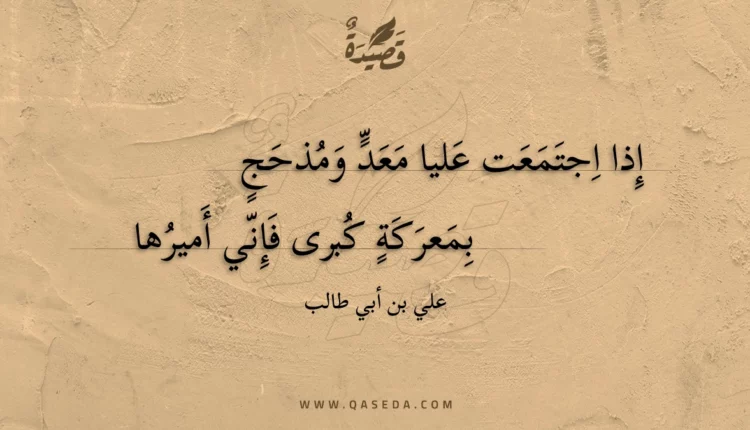 قَصِيدَةٌ
إِذا اِجتَمَعَت عَليا مَعَدٍّ وَمُذحَجٍ
بِمَعرَكَةٍ كُبرى فَإِنّي أَميرُها
علي بن أبي طالب
WWW.QASEDA.COM